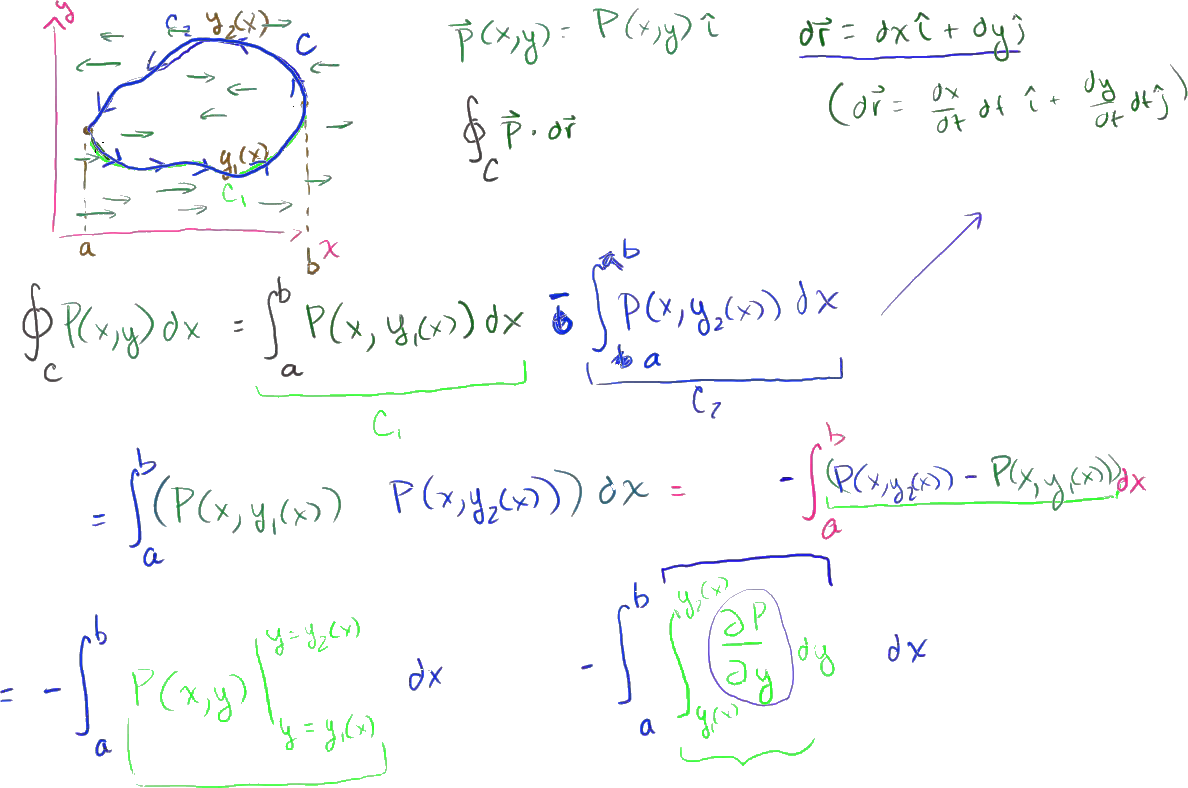 y
C₂ y₂(x) C
y₁(x)
C₁
a b x
P⃗(x,y) = P(x,y) î
dr⃗ = dx î + dy ĵ
∮_C P⃗ · dr⃗
(dr⃗ = dx/dt dt î + dy/dt dt ĵ)
∮_C P(x,y) dx = ∫_a^b P(x, y₁(x)) dx - ∫_a^b P(x, y₂(x)) dx
C₁ C₂
= ∫_a^b (P(x, y₁(x)) P(x, y₂(x))) dx = - ∫_a^b (P(x, y₂(x)) - P(x, y₁(x))) dx
= - ∫_a^b P(x,y) |_{y = y₁(x)}^{y = y₂(x)} dx - ∫_a^b ∫_{y₁(x)}^{y₂(x)} ∂P/∂y dy dx